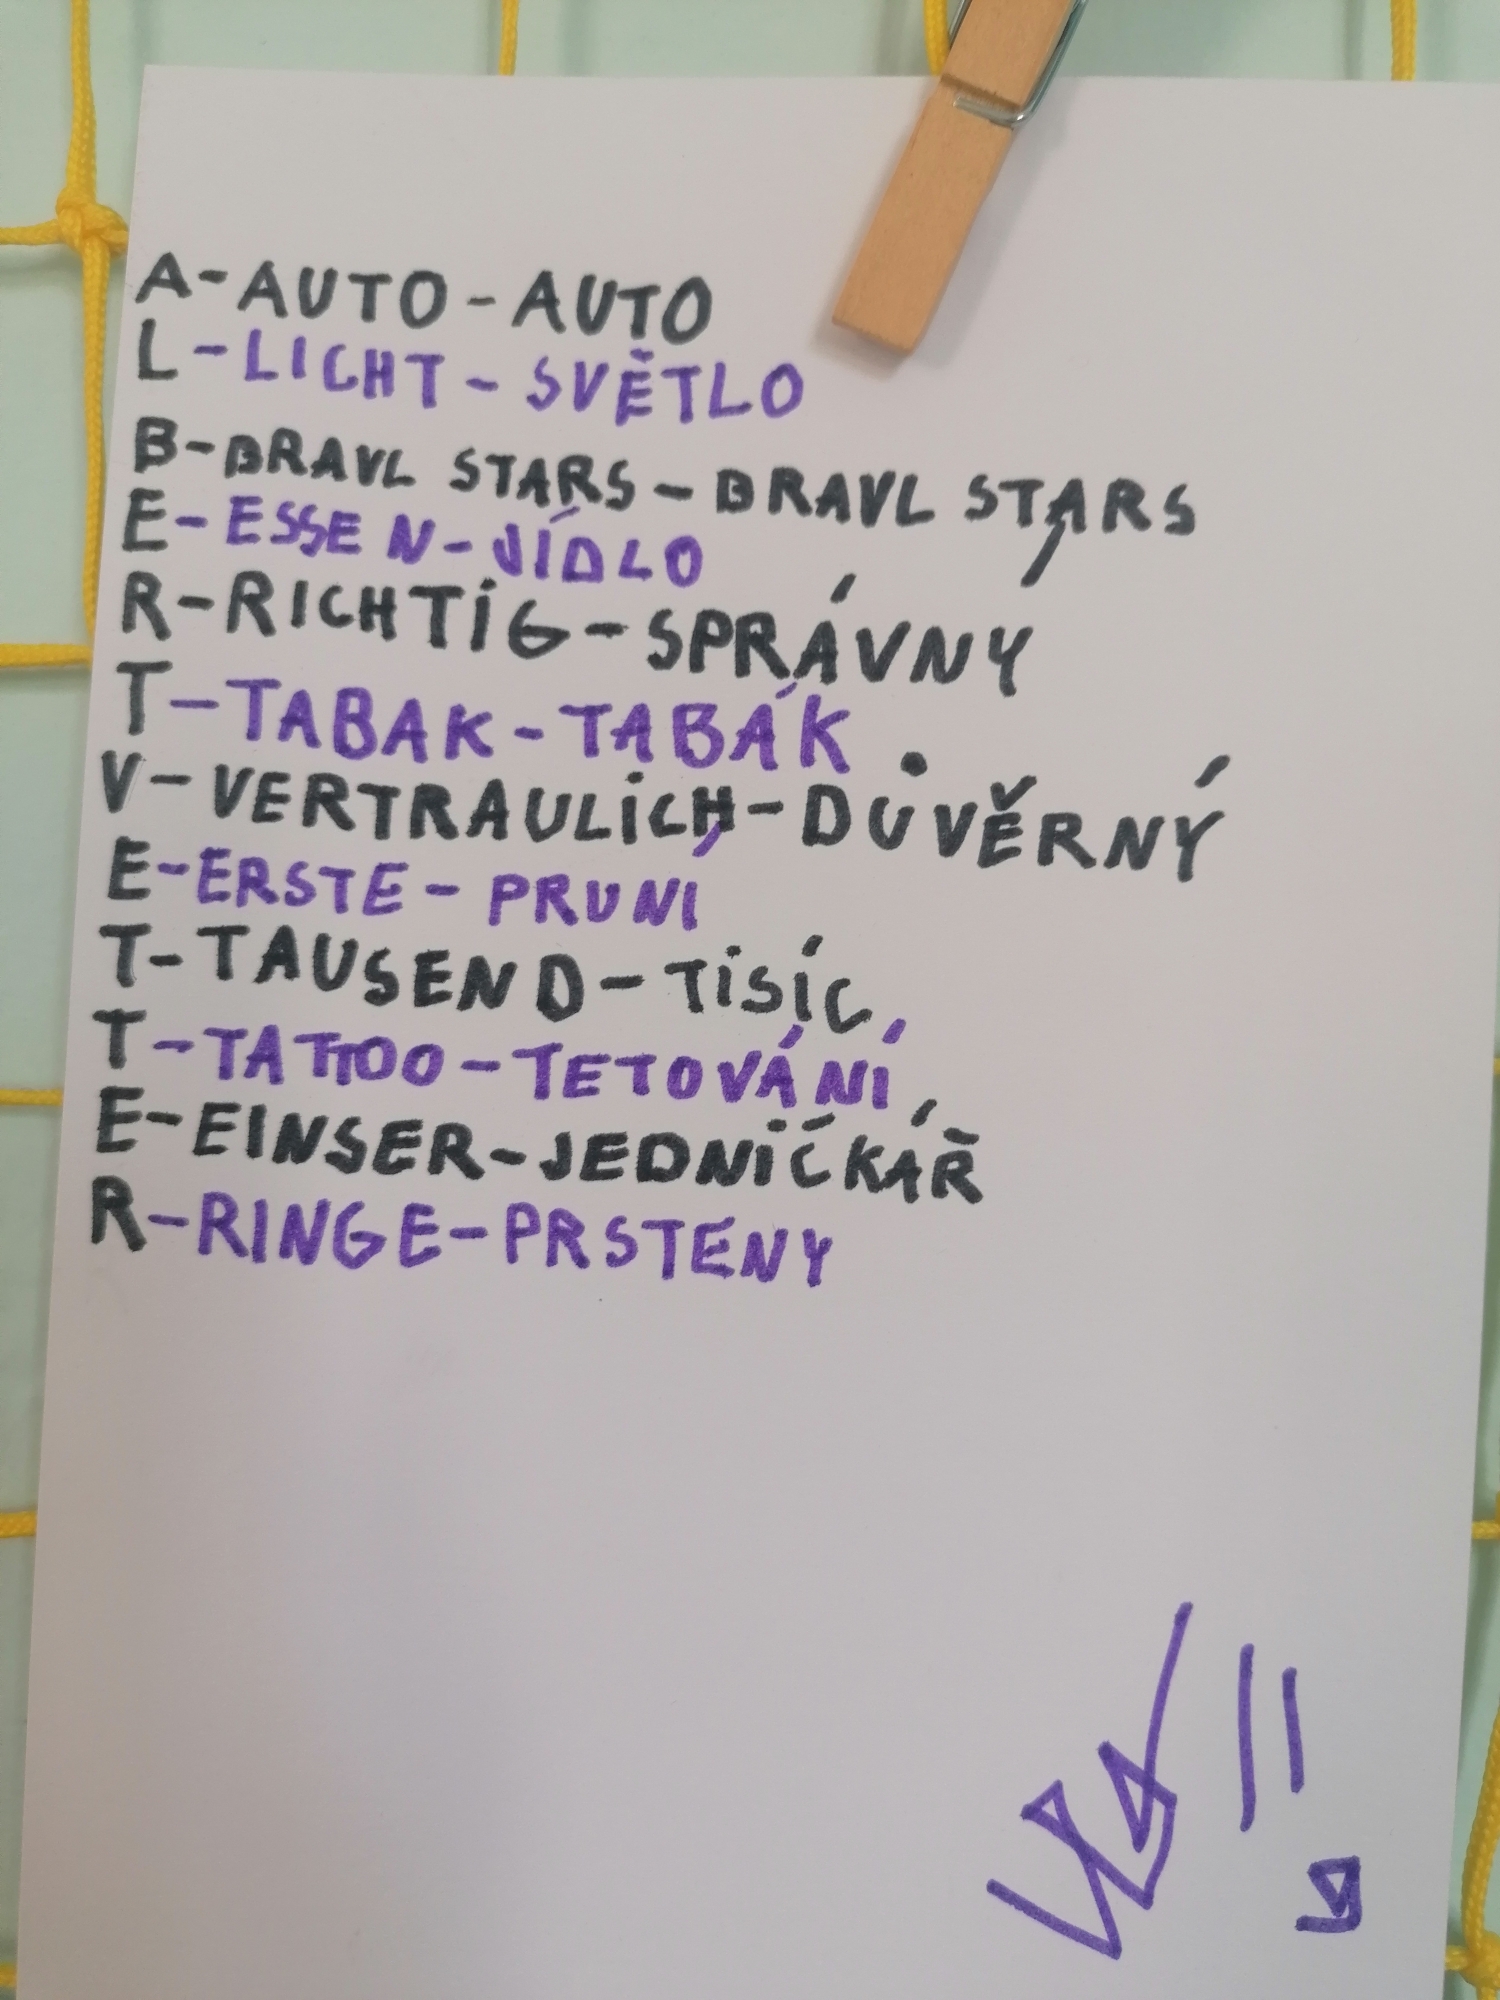 A-AUTO-AUTO
L-LICHT-SVĚTLO
B-BRAVL STARS-BRAVL STARS
E-ESSEN-JÍDLO
R-RICHTIG-SPRÁVNÝ
T-TABAK-TABÁK
V-VERTRAULICH-DŮVĚRNÝ
E-ERSTE-PRVNÍ
T-TAUSEND-TISÍC
T-TATTOO-TETOVÁNÍ
E-EINSER-JEDNIČKÁŘ
R-RINGE-PRSTENY